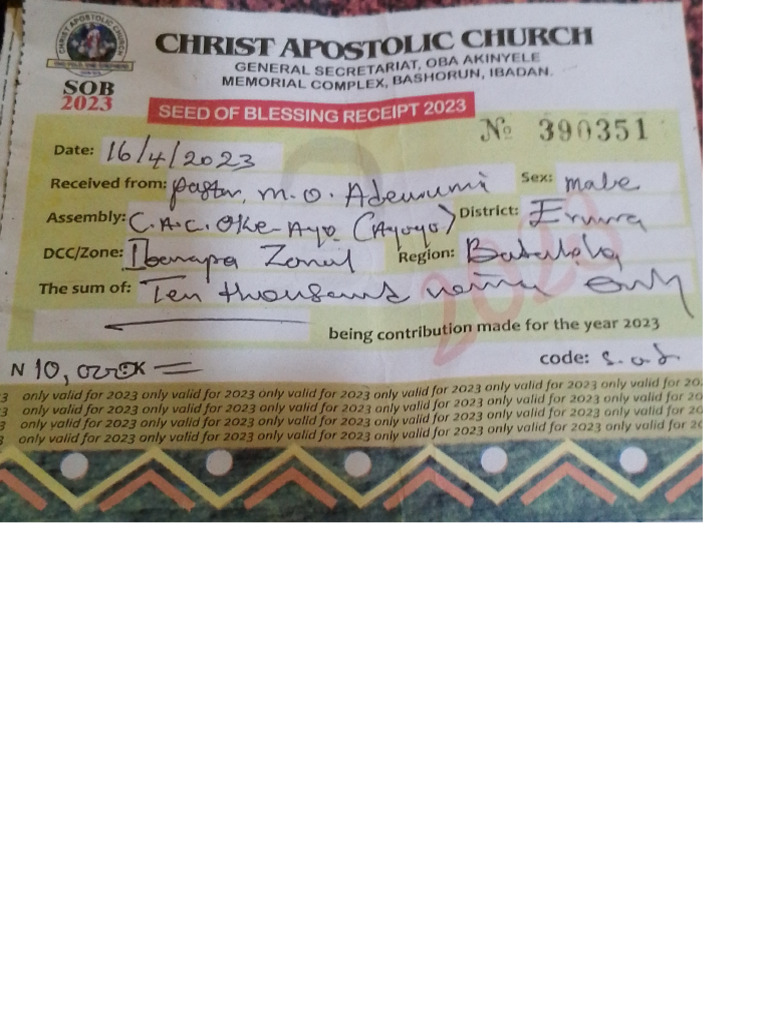 CHRIST APOSTOLIC CHURCH
SOB
2023
CHRIST APOSTOLIC CHURCH
GENERAL SECRETARIAT, OBA AKINYELE
MEMORIAL COMPLEX, BASHORUN, IBADAN.
SEED OF BLESSING RECEIPT 2023
No 390351
Date: 16/4/2023
Received from: pastor, M.O. Adewumi Sex: male
Assembly: C.A.C. Oke-Ayo (Ayoyo) District:
DCC/Zone: Ibarapa Zonal Region:
The sum of: Ten thousand naira only
2023
being contribution made for the year 2023
N 10,000=K code:
3 only valid for 2023 only valid for 2023 only valid for 2023 only valid for 2023 only valid for 2023 only valid for 20
3 only valid for 2023 only valid for 2023 only valid for 2023 only valid for 2023 only valid for 2023 only valid for 202
3 only valid for 2023 only valid for 2023 only valid for 2023 only valid for 2023 only valid for 2023 only valid for 20
3 only valid for 2023 only valid for 2023 only valid for 2023 only valid for 2023 only valid for 2023 only valid for 20